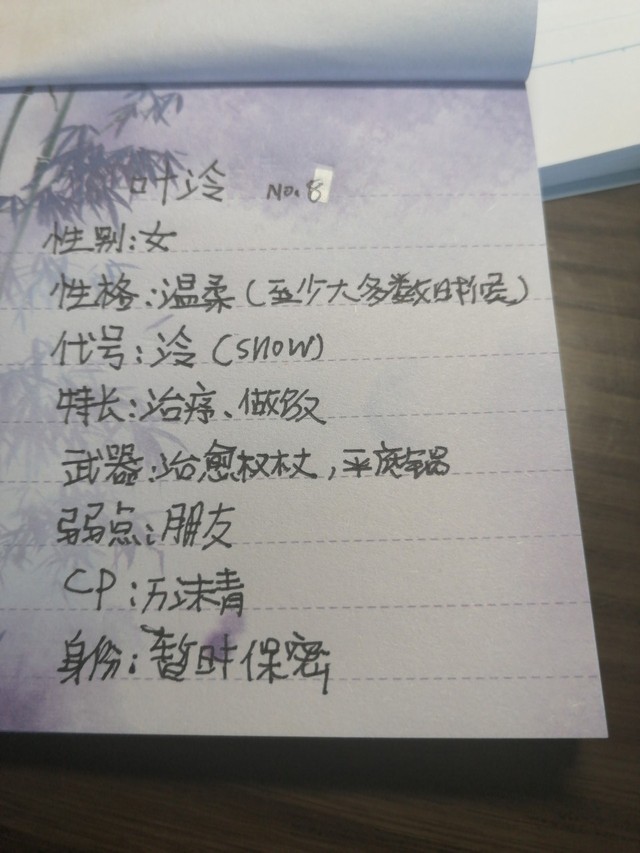 叶冷 No.8
性别:女
性格:温柔(至少大多数时候)
代号:冷(snow)
特长:治疗、做饭
武器:治愈权杖,平底锅
弱点:朋友
CP:万沫青
身份:暂时保密